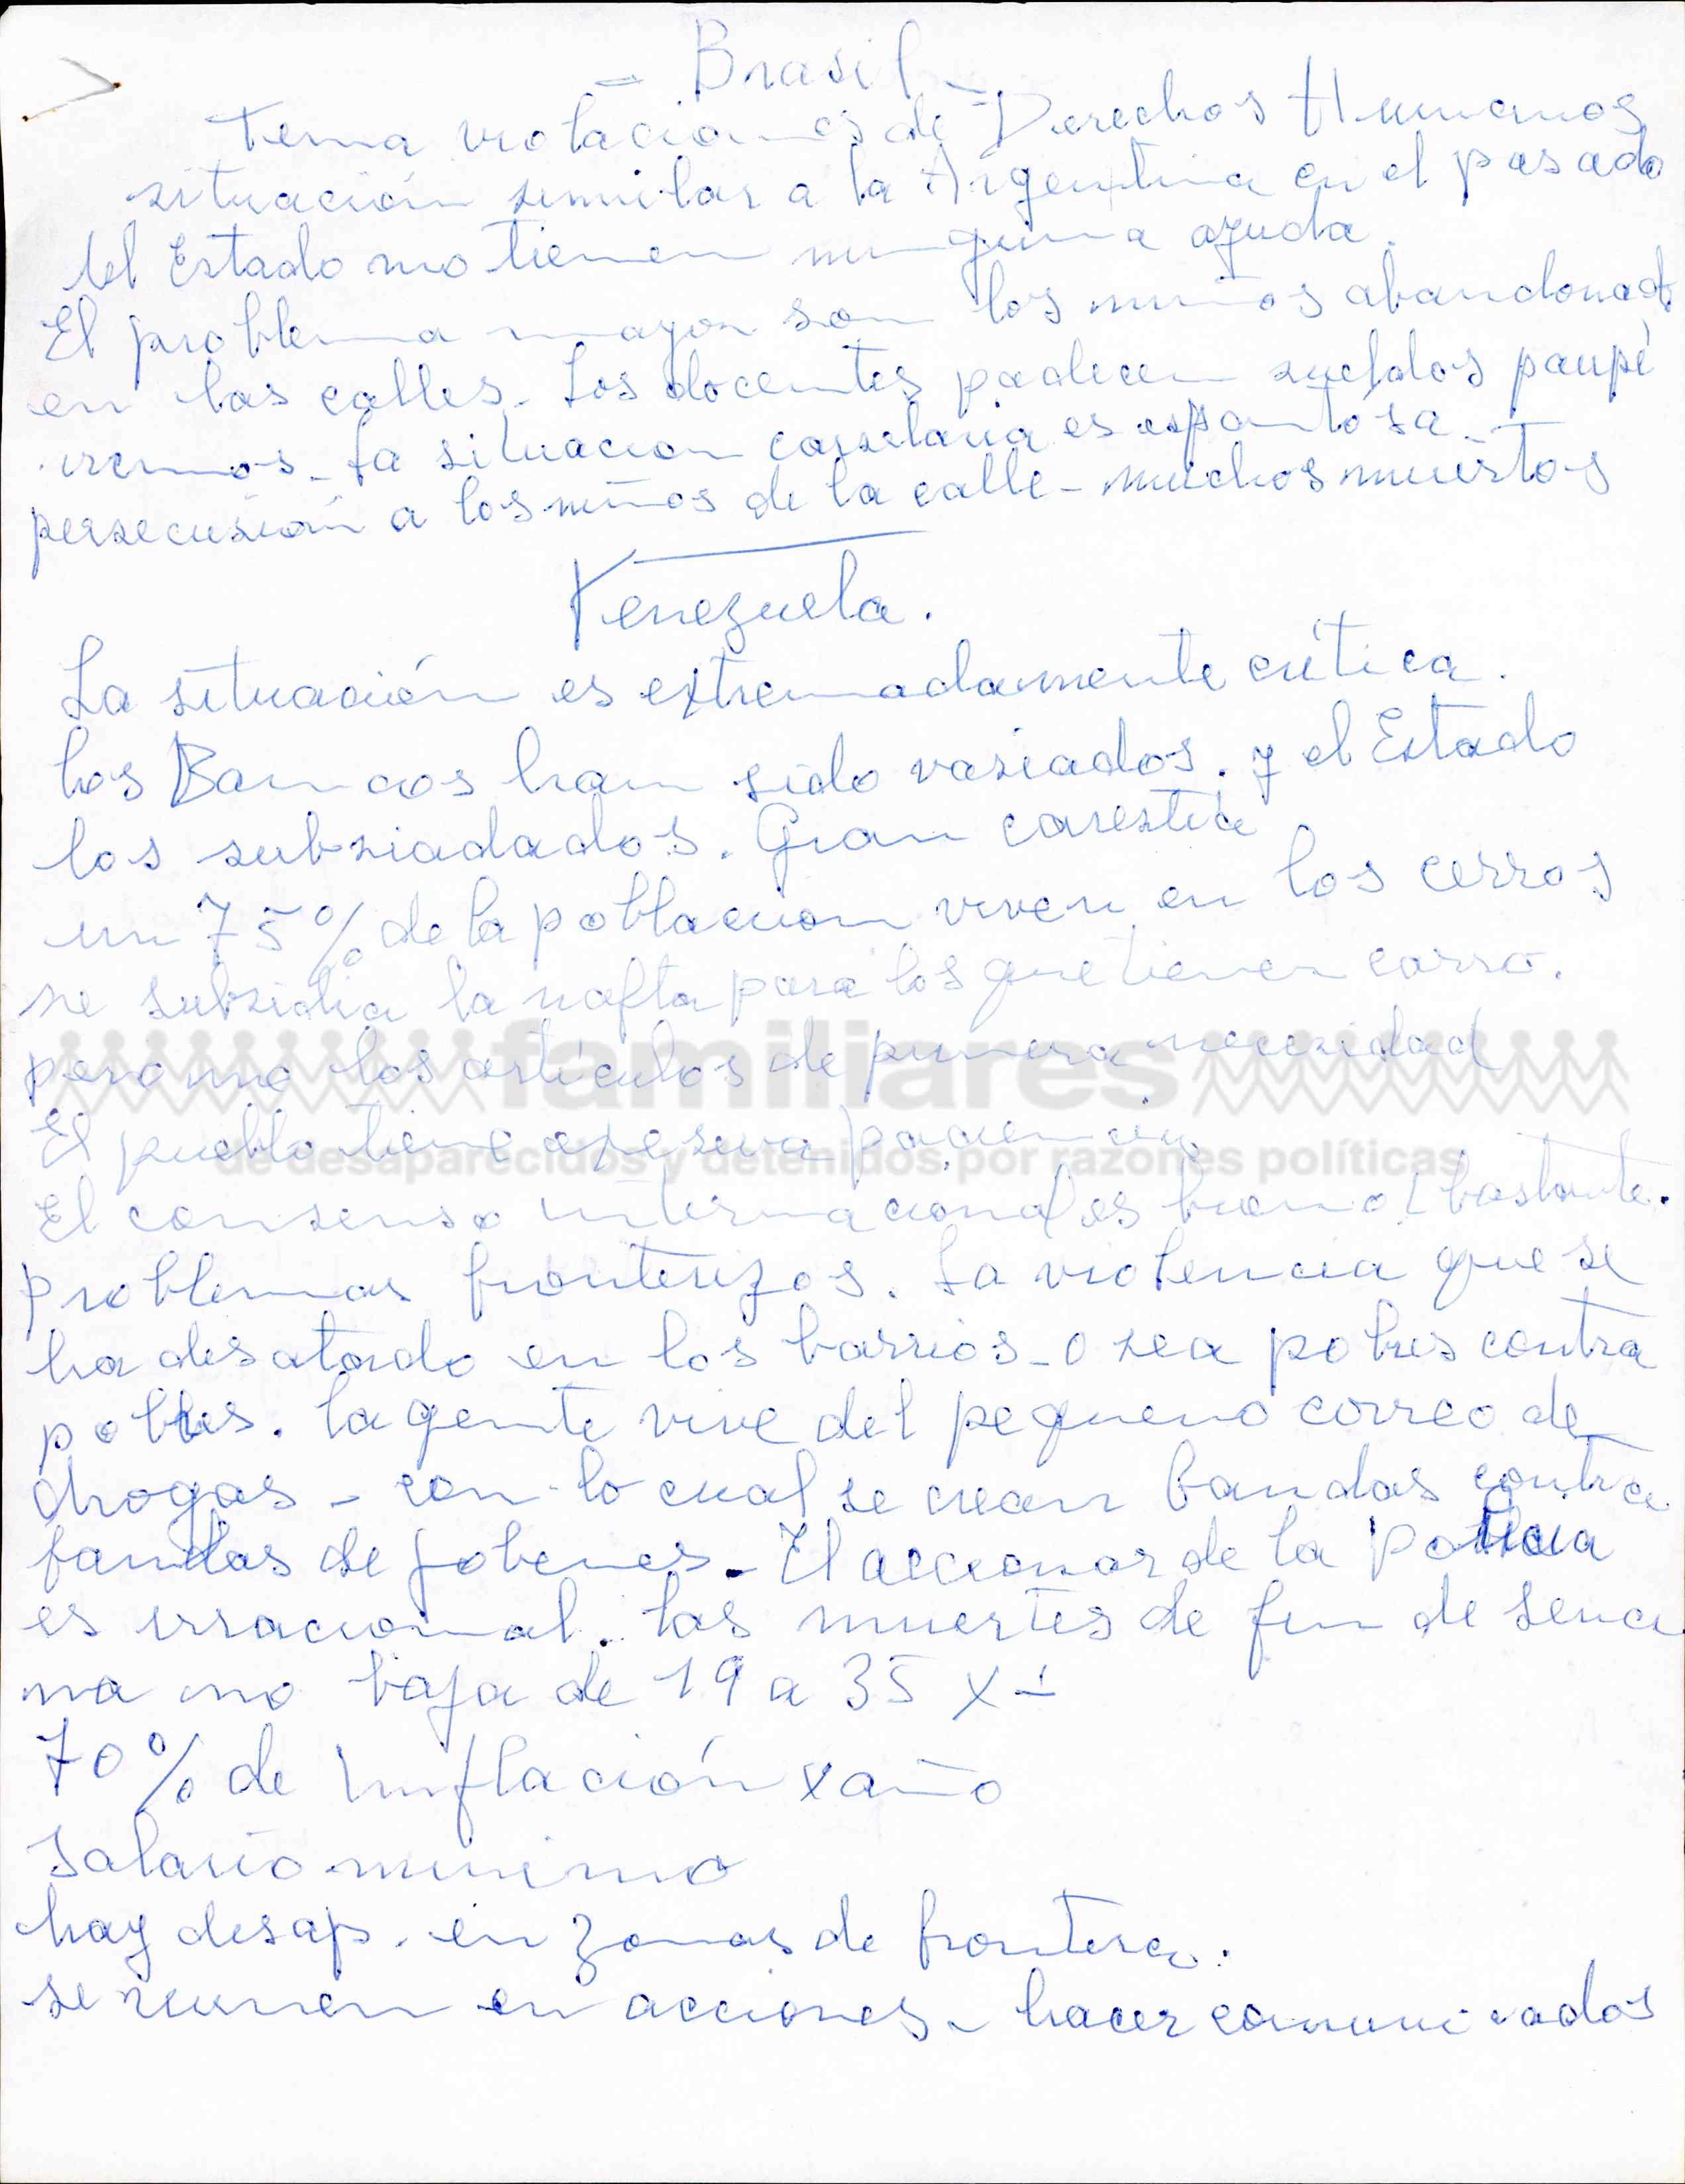 - Brasil -
Tema violaciones de Derechos Humanos
situación similar a la Argentina en el pasado
del Estado no tienen ninguna ayuda.
El problema mayor son los niños abandonados
en las calles. Los docentes padecen sueldos paupé
rremos. La situacion carselaria es espantosa -
persecusión a los niños de la calle - muchos muertos
Venezuela.
La situación es extremadamente crítica.
Los Bancos han sido vasiados. y el Estado
los subsiadados. Gran carestia
un 75% de la poblacion viven en los cerros
se subsidia la nafta para los que tienen carro.
pero no los artículos de primera necesidad
El pueblo tiene exesiva paciencia
El consenso internacional es bueno bastante.
problemas fronterizos. La violencia que se
ha desatado en los barrios - o sea pobres contra
pobres. la gente vive del pequeno correo de
drogas - con lo cual se crean bandas contra
bandas de jobenes - El accionar de la Policia
es irracional. las muertes de fin de sema
na no baja de 19 a 35 x
70% de Inflación x año
Salario minimo
hay desap. en zonas de frontera.
se reunen en acciones - hacer comunicados
familiares
de desaparecidos y detenidos por razones políticas